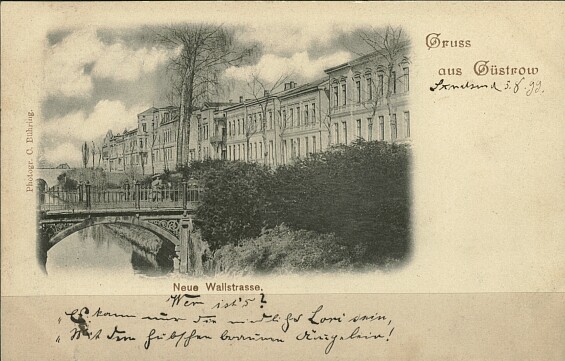 Gruss
aus Güstrow
5.8.99.
Photogr. C. Bühring.
Neue Wallstrasse.
Wer ist's?
„Es kann nur die niedliche Lori sein,
„Mit den hübschen braunen Äugelein!